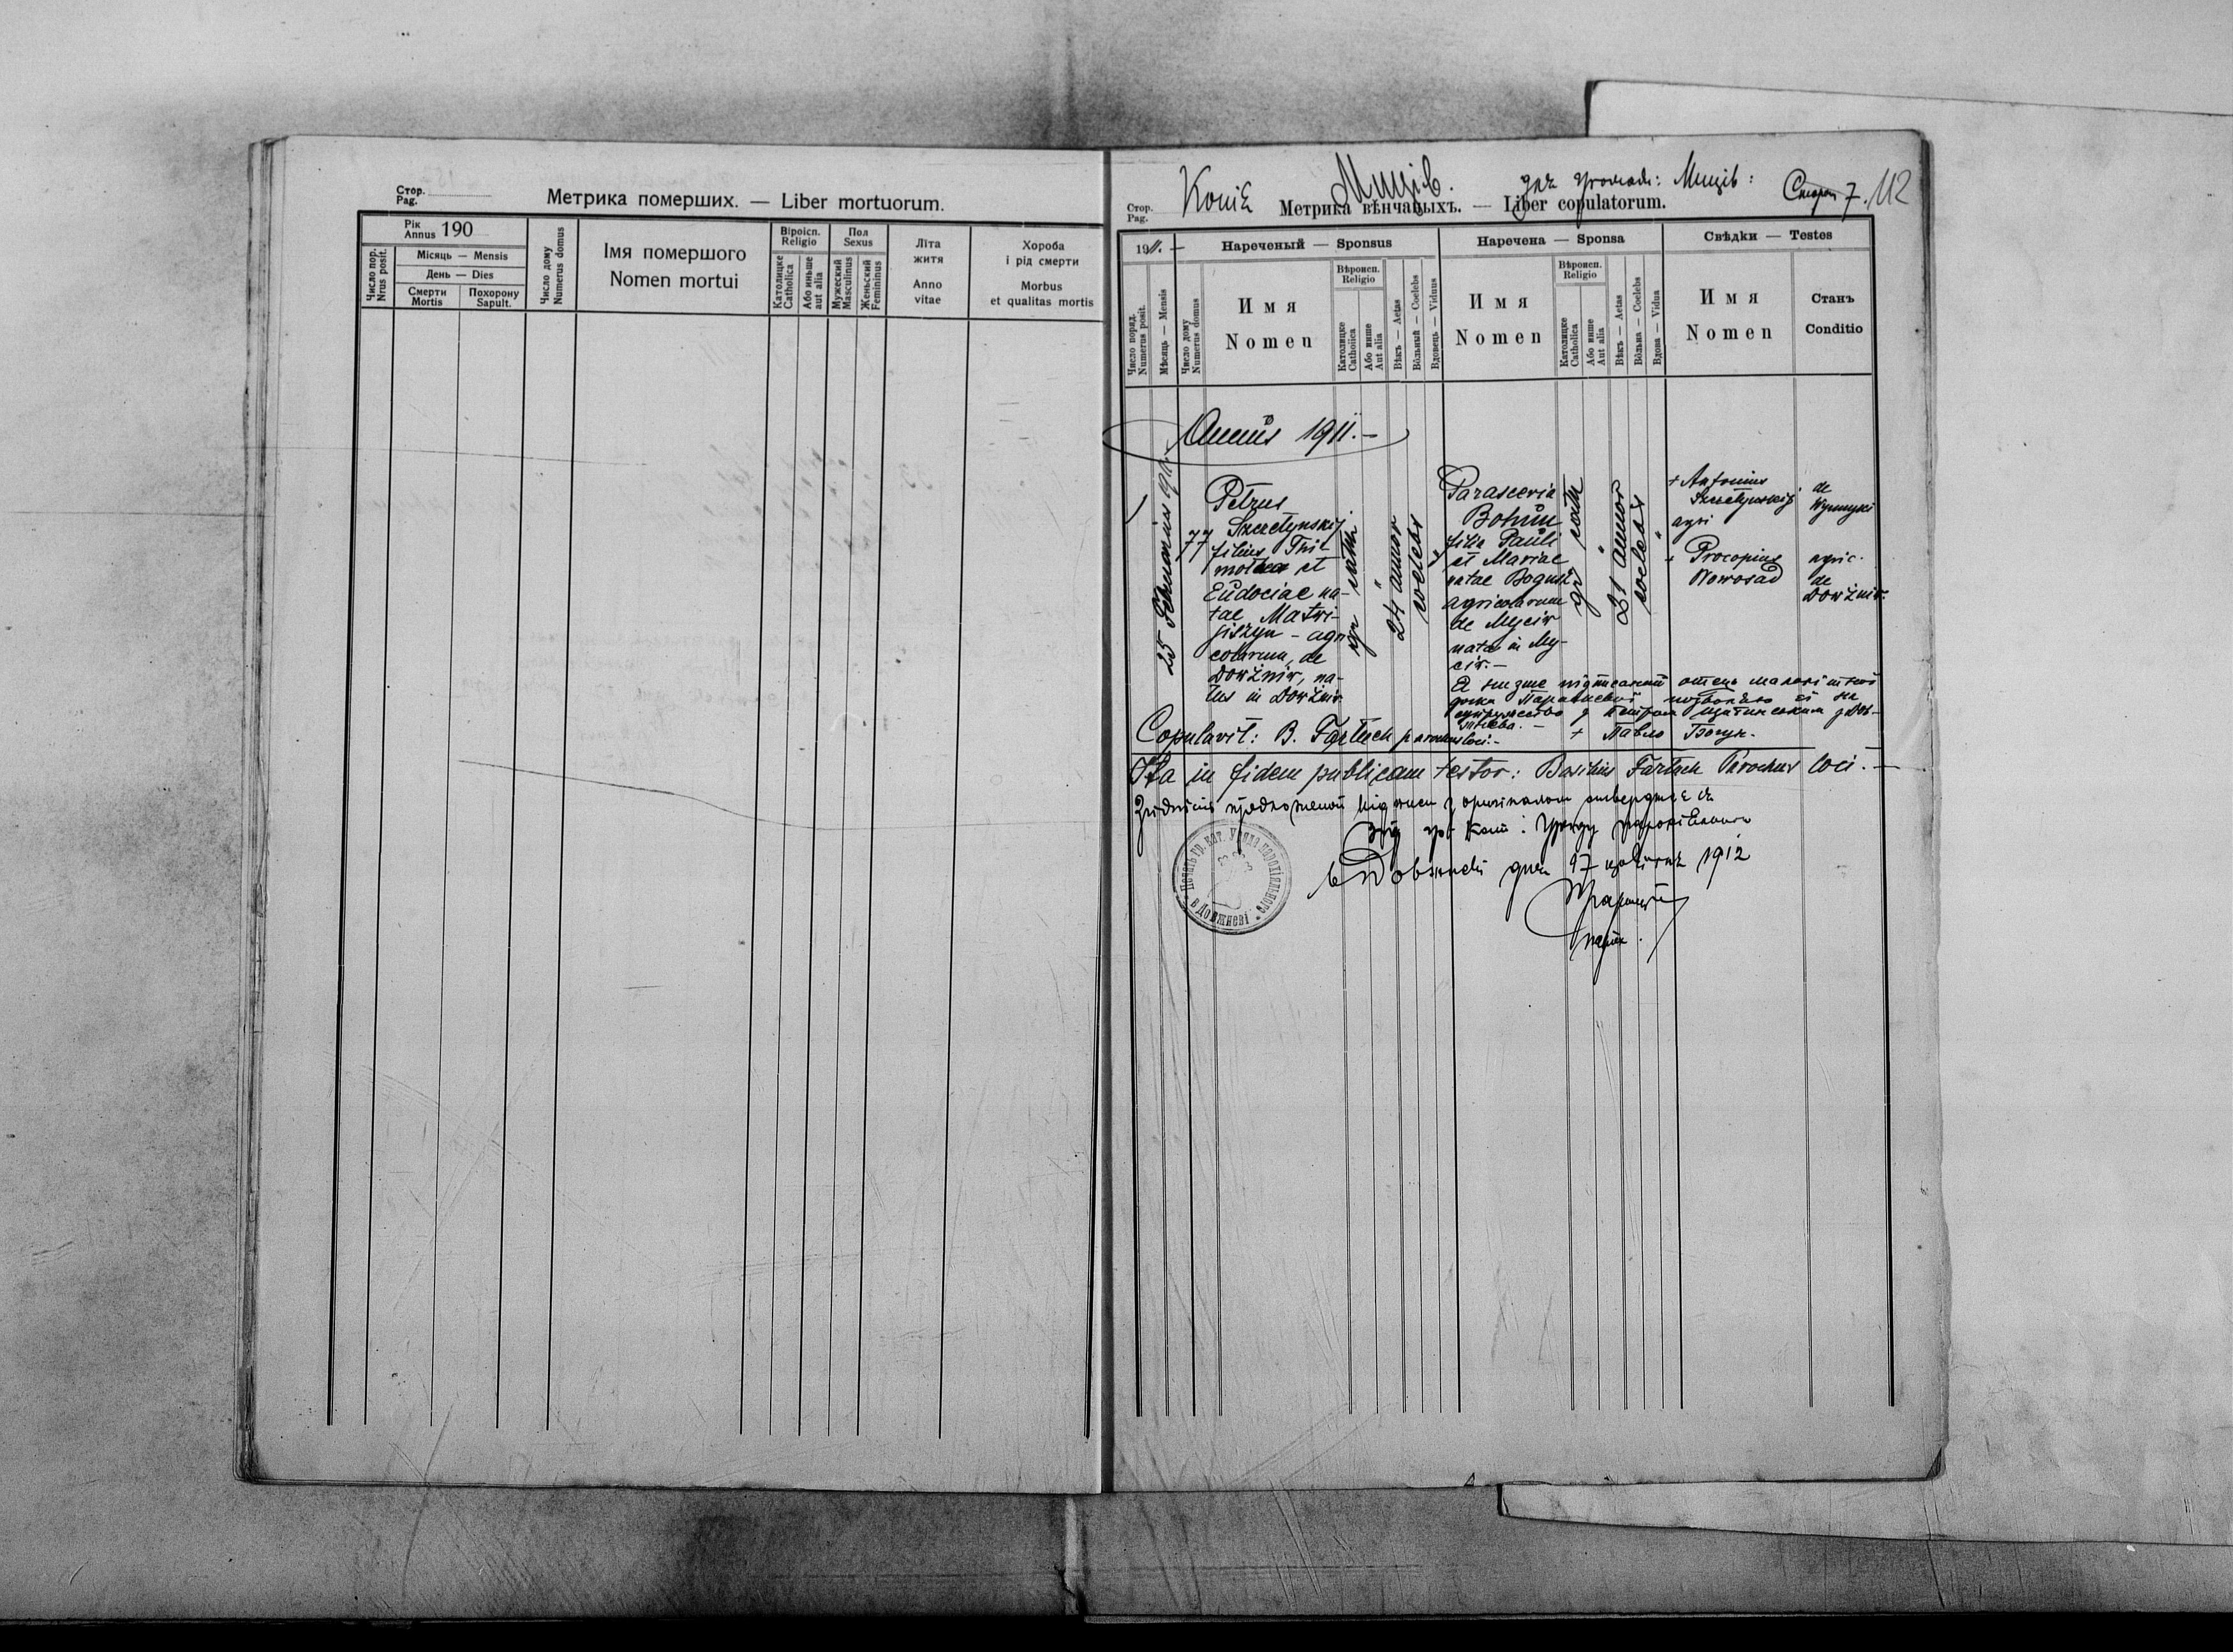 Стор.
Pag.
Метрика померших. — Liber mortuorum.
Рік
Annus 190
Число пор.
Nrus posit.
Місяць — Mensis
День — Dies
Смерти
Mortis
Похорону
Sapult.
Число дому
Numerus domus
Імя помершого
Nomen mortui
Віроісп.
Religio
Католицке
Catholica
Або иньше
aut alia
Пол
Sexus
Мужеский
Masculinus
Женьский
Femininus
Літа
житя
Anno
vitae
Хороба
і рід смерти
Morbus
et qualitas mortis
Копія Миців. для громади: Миців: Сторон 7. 112
Стор.
Pag.
Метрика вѣнчаныхъ. — Liber copulatorum.
1911. —
Нареченый — Sponsus
Наречена — Sponsa
Свѣдки — Testes
Число поряд.
Numerus posit.
Мѣсяць — Mensis
Число дому
Numerus domus
Имя
Nomen
Вѣроисп.
Religio
Католицке
Catholica
Або инше
Aut alia
Вѣкъ — Aetas
Вôльный — Coelebs
Вдовець — Viduus
Имя
Nomen
Вѣроисп.
Religio
Католицке
Catholica
Або инше
Aut alia
Вѣкъ — Aetas
Вôльна — Coelebs
Вдова — Vidua
Имя
Nomen
Станъ
Conditio
Annus 1911. —
25 Februarius 911.
77
Petrus
Szczetynskij
filius Thi-
mothea et
Eudociae na-
tae Matwi-
jiszyn - agri
colarum, de
Dowżniw, na-
tus in Dowżniw
gr. cath.
24 annor
coelebs
Parascevia
Bohun
filia Pauli
et Mariae
natae Bogusz
agricolarum
de Myciw
nata in My-
ciw. —
gr. cath
21 annor
coelebs
+ Antonius
Szczetynskij
agri
de
+ Procopius
Nowosad
agric.
de
Dowżniw.
Я низше підписаний отець малолітної
доньки Параскевії позволяю єї на
супружество з Петром Щетинським з Дов-
жнева. —
+ Павло Богун.
Copulavit: B. Fartuch parochus loci. —
Ita in fidem publicam testor: Basilius Fartuch Parochus loci. —
Згідність предложеної відписи з оригіналом стверджає ся
Від гр. кат: Уряду парохіяльного
в Довжневі дня 17 1912
Печать гр. кат. Уряда парохіяльного
в Довжневі